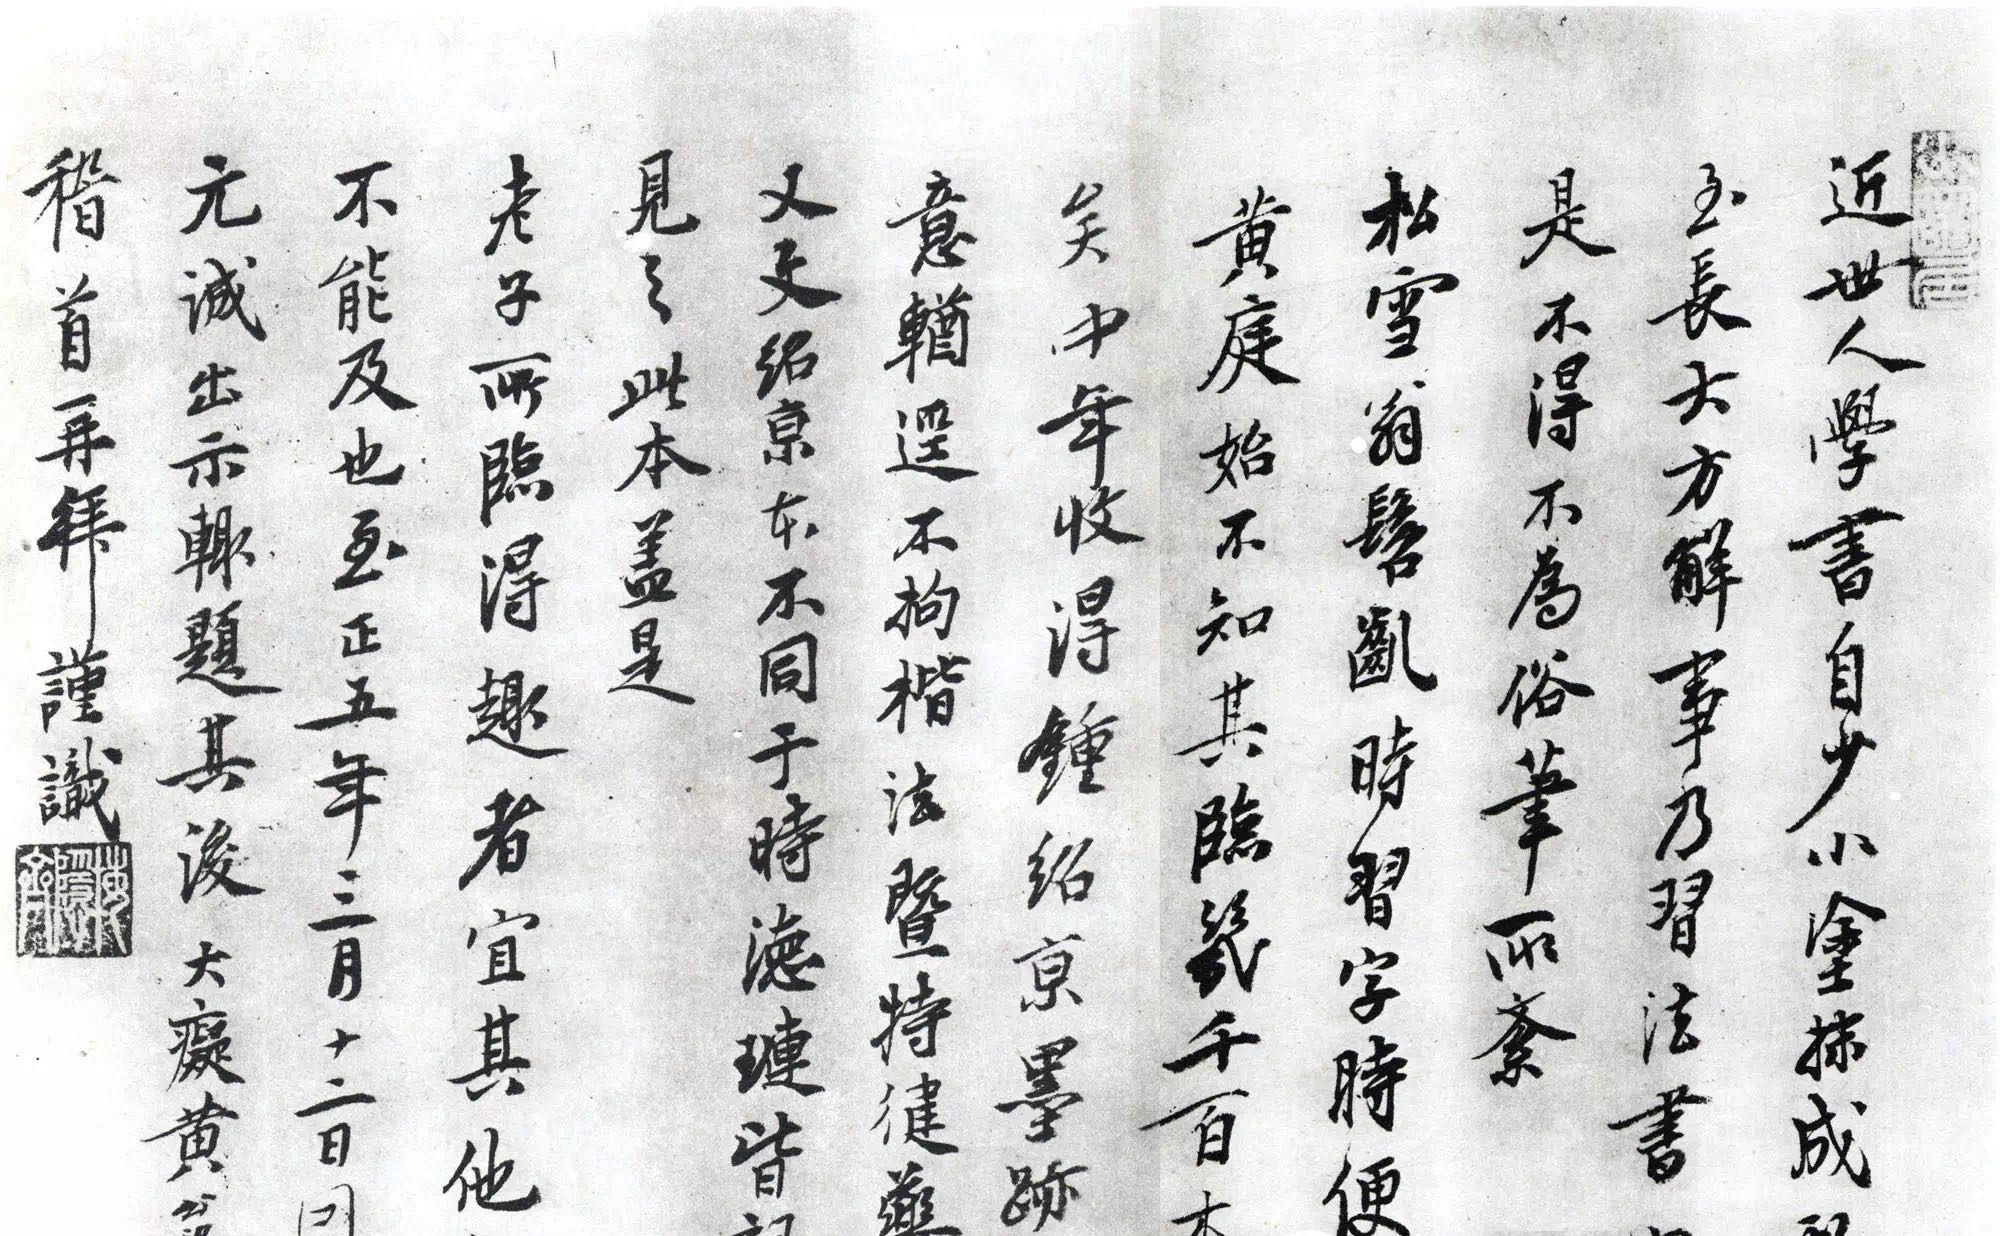 近世人學書自少小塗抹成
至長大方解事乃習法書
是不得不為俗筆所紊
松雪翁髫齔時習字時便
黄庭始不知其臨幾千百本
矣中年收得鍾紹京墨跡
意輶逕不拘楷法暨特健藥
又史紹京本不同于時德璉皆
見之此本盖是
老子所臨得趣者宜其他
不能及也至正五年三月十二日
元誠出示輙題其後大癡黄公
稽首再拜謹識